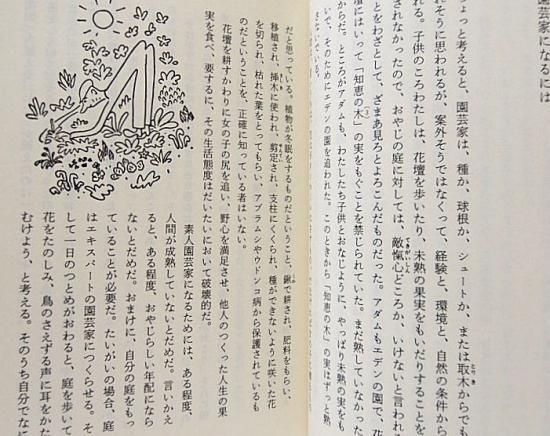 園芸家になるには
ちょっと考えると、園芸家は、種か、球根か、シュートか、または取木からでも
れそうに思われるが、案外そうではなくて、経験と、環境と、自然の条件から
れる。子供のころわたしは、花壇を歩いたり、未熟の果実をもいだりすることを
されなかったので、おやじの庭に対しては、敵愾心どころか、いけないと言われ
ことをわざとして、ざまあ見ろとよろこんだものだった。アダムもエデンの園で、花
壇にはいって「知恵の木」の実をもぐことを禁じられていた。まだ熟していなかった
からだ。ところがアダムも、わたしたち子供とおなじように、やっぱり未熟の実をも
いで、そのためにエデンの園を追われた。このときから「知恵の木」の実はずっと熟
さないでいる。
だと思っている。植物が冬眠をするものだということ、鍬で耕され、肥料をもらい、
移植され、挿木に使われ、剪定され、支柱にくくられ、種ができないように咲いた花
を切られ、枯れた葉をとってもらい、アブラムシやウドンコ病から保護されているも
のだということを、正確に知っている者はいない。
花壇を耕すかわりに女の子の尻を追い、野心を満足させ、他人のつくった人生の果
実を食べ、要するに、その生活態度はだいたいにおいて破壊的だ。
素人園芸家になるためには、ある程度、
人間が成熟していないとだめだ。言いかえ
ると、ある程度、おやじらしい年配になら
ないとだめだ。おまけに、自分の庭をもっ
ていることが必要だ。たいがいの場合、庭
はエキスパートの園芸家につくらせる。そ
して一日のつとめがおわると、庭を歩いて
花をたのしみ、鳥のさえずる声に耳をかた
むけよう、と考える。そのうち自分でなに